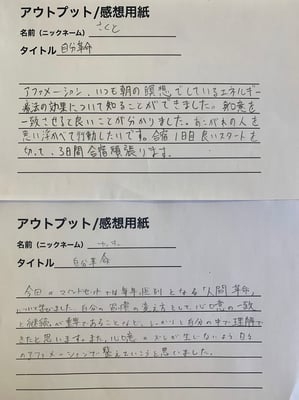 アウトプット/感想用紙
名前(ニックネーム) さくと
タイトル 自分革命
アファメーション、いつも朝の瞑想でしているエネルギー
療法の効果について知ることができました。知意を
一致させると良いことが分かりました。あこがれの人を
思い浮かべて行動したいです。合宿1日目良いスタートを
切って、3日間合宿頑張ります。
アウトプット/感想用紙
名前(ニックネーム)
タイトル 自分革命
今回のマインドセットでは毎年恒例となる「人間革命」
について学びました。自分の習慣の変え方として、心口意の一致
と継続が重要であることなど、しっかりと自分の中で理解で
きたと思います。また、心口意のズレが生じないよう自分
のアファメーションで整えたいなと思いました。